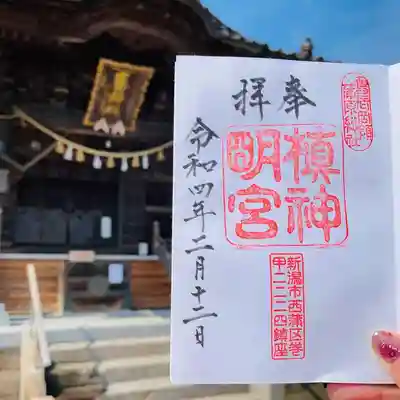 奉拝
槙神
明宮
新潟市西蒲区巻
甲二二二四鎮座
令和四年二月十二日